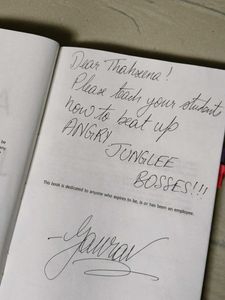 Dear Thahseena!
Please teach your students
how to beat up
ANGRY
JUNGLEE
BOSSES!!!
This book is dedicated to anyone who aspires to be, is or has been an employee.
-Gaurav